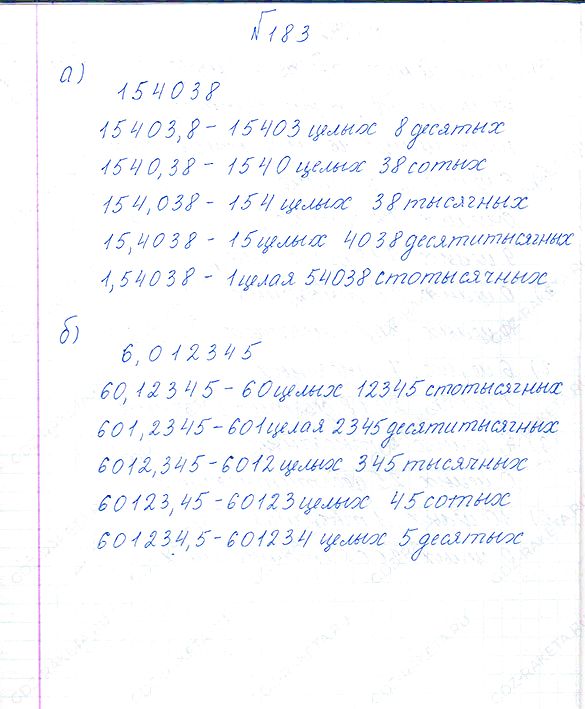 №183
а)
154038
15403,8 - 15403 целых 8 десятых
1540,38 - 1540 целых 38 сотых
154,038 - 154 целых 38 тысячных
15,4038 - 15 целых 4038 десятитысячных
1,54038 - 1 целая 54038 стотысячных
б)
6,012345
60,12345 - 60 целых 12345 стотысячных
601,2345 - 601 целая 2345 десятитысячных
6012,345 - 6012 целых 345 тысячных
60123,45 - 60123 целых 45 сотых
601234,5 - 601234 целых 5 десятых